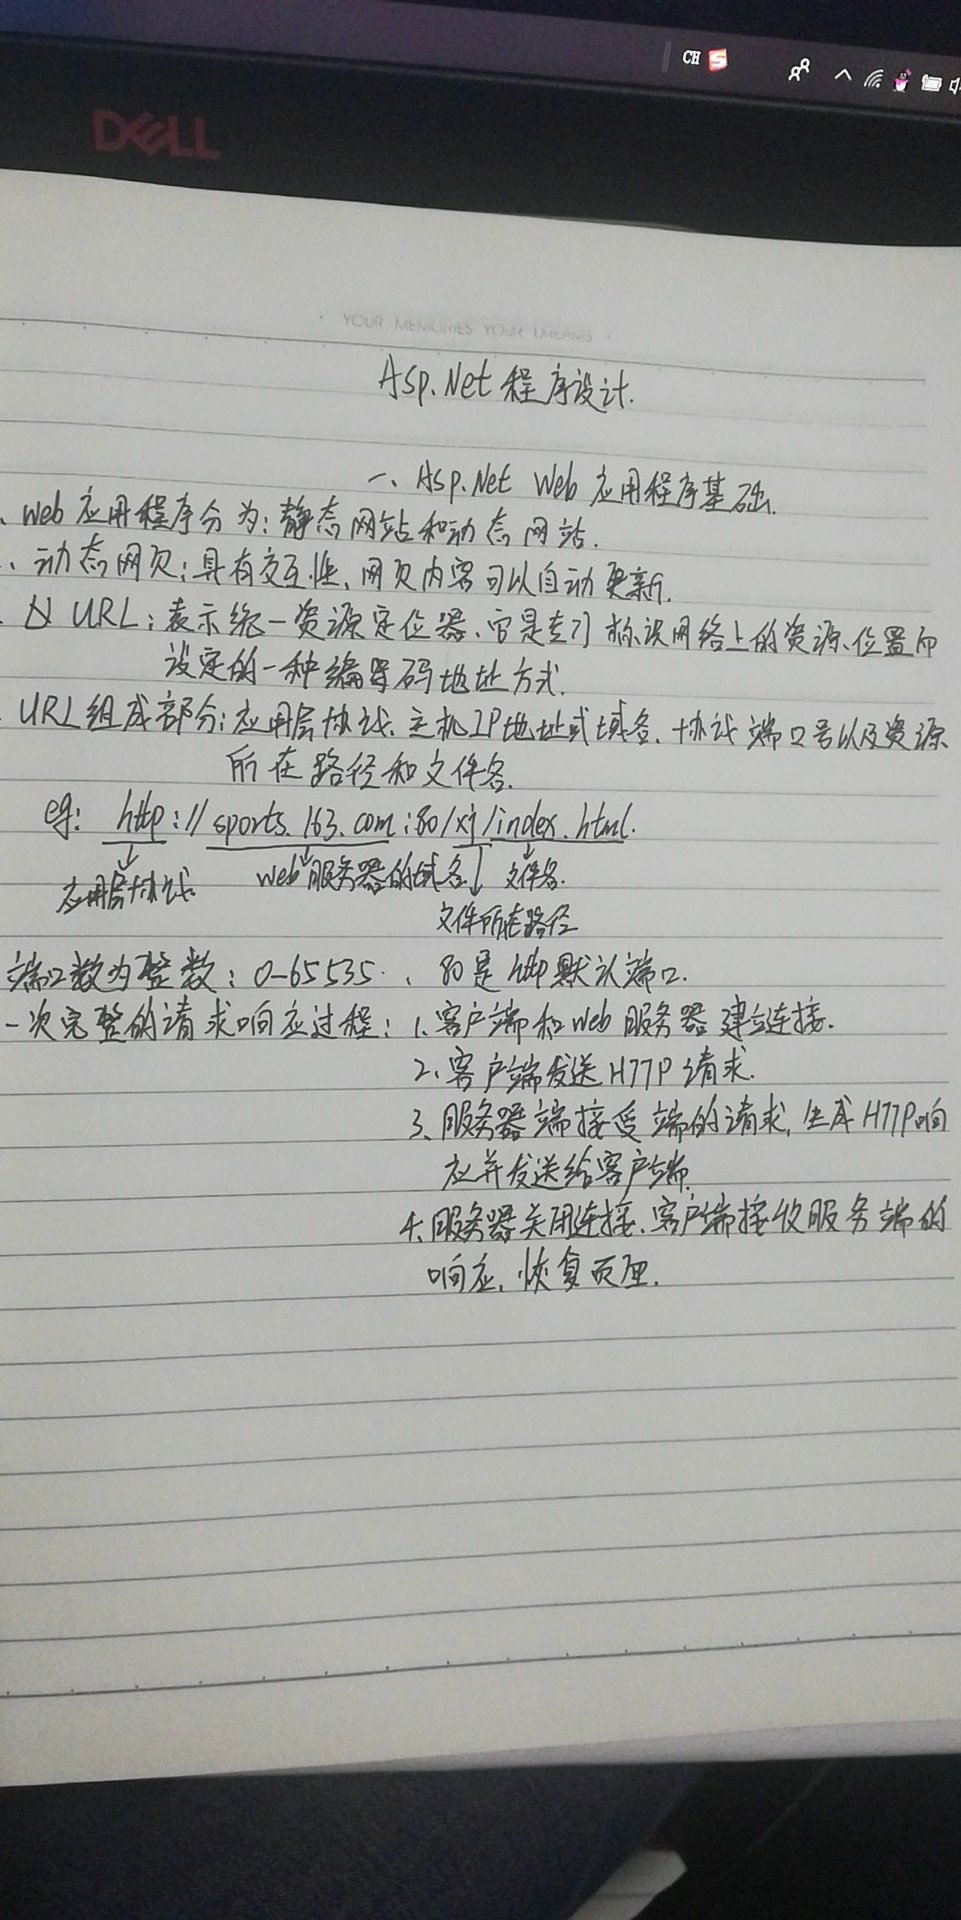 CH
DELL
YOUR MEMORIES YOUR DREAMS
Asp.Net 程序设计.
一、Asp.Net Web 应用程序基础.
、Web 应用程序分为:静态网站和动态网站.
、动态网页:具有交互性、网页内容可以自动更新.
URL:表示统一资源定位器、它是专门标识网络上的资源位置而
设定的一种编码地址方式.
URL组成部分:应用层协议、主机IP地址或域名、协议端口号以及资源
所在路径和文件名.
eg: http://sports.163.com:80/xj/index.html.
应用层协议 Web服务器的域名 文件名.
文件所在路径
端口数为整数:0-65535、80是http默认端口.
一次完整的请求响应过程:1.客户端和Web服务器建立连接.
2、客户端发送HTTP请求.
3、服务器端接受端的请求,生成HTTP响
应并发送给客户端.
4、服务器关闭连接、客户端接收服务端的
响应,恢复页面.